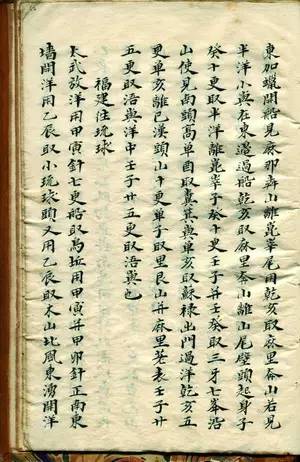 東加蠟開船見麻那弄山離崑峯尾用乾亥取麻里荅山若見
半洋小與在東邊過船乾亥取麻里荅山離山尾壁頭起身子
癸十更取半洋離崑峯子癸十更壬子并壬癸取三牙七峯沿
山使見南頭高單酉取箕與單亥取蘇祿出門過洋乾亥五
更單亥離巳漢頭山十更單子取里艮山并麻里荖表壬子廿
五更取浯與洋中壬子廿五更取浯與也
福建往琉球
太武放洋用甲寅針七更船取烏坵用甲寅并甲卯針正南東
墻開洋用乙辰取小琉球頭又用乙辰取木山北風東湧開洋